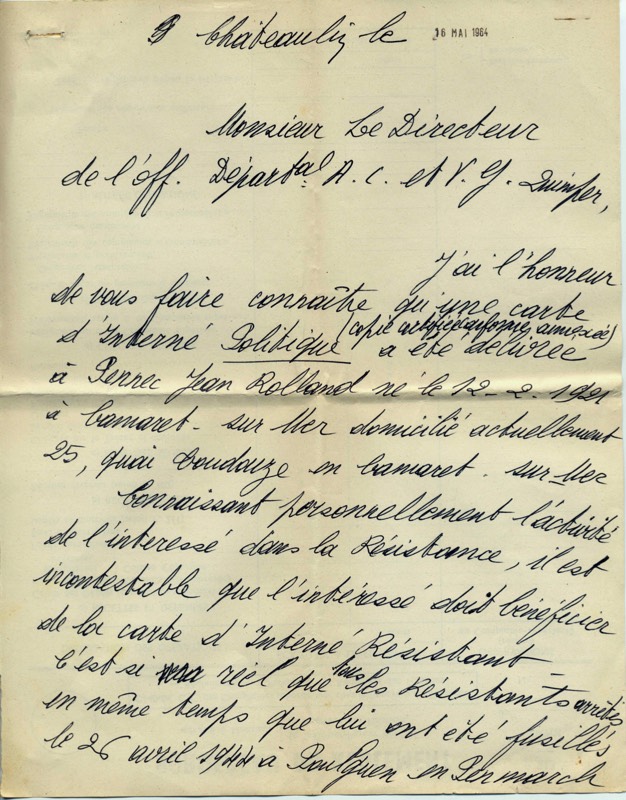 Châteaulin le 16 MAI 1964
Monsieur Le Directeur
de l'off. Départal A. C. et V. G. Quimper,
J'ai l'honneur
de vous faire connaître qu'une carte
d'Interné Politique (copie certifiée conforme, annexée) a été délivrée
à Perrec Jean Rolland né le 12-2-1921
à Camaret-sur Mer domicilié actuellement
25, quai Toudouze en Camaret-sur-Mer
Connaissant personnellement l'activité
de l'interessé dans la Résistance, il est
incontestable que l'intéressé doit bénéficier
de la carte d'Interné Résistant_
C'est si réel que tous les Résistants arrêtés
en même temps que lui ont été fusillés
le 26 avril 1944 à Poulguen en Penmarch